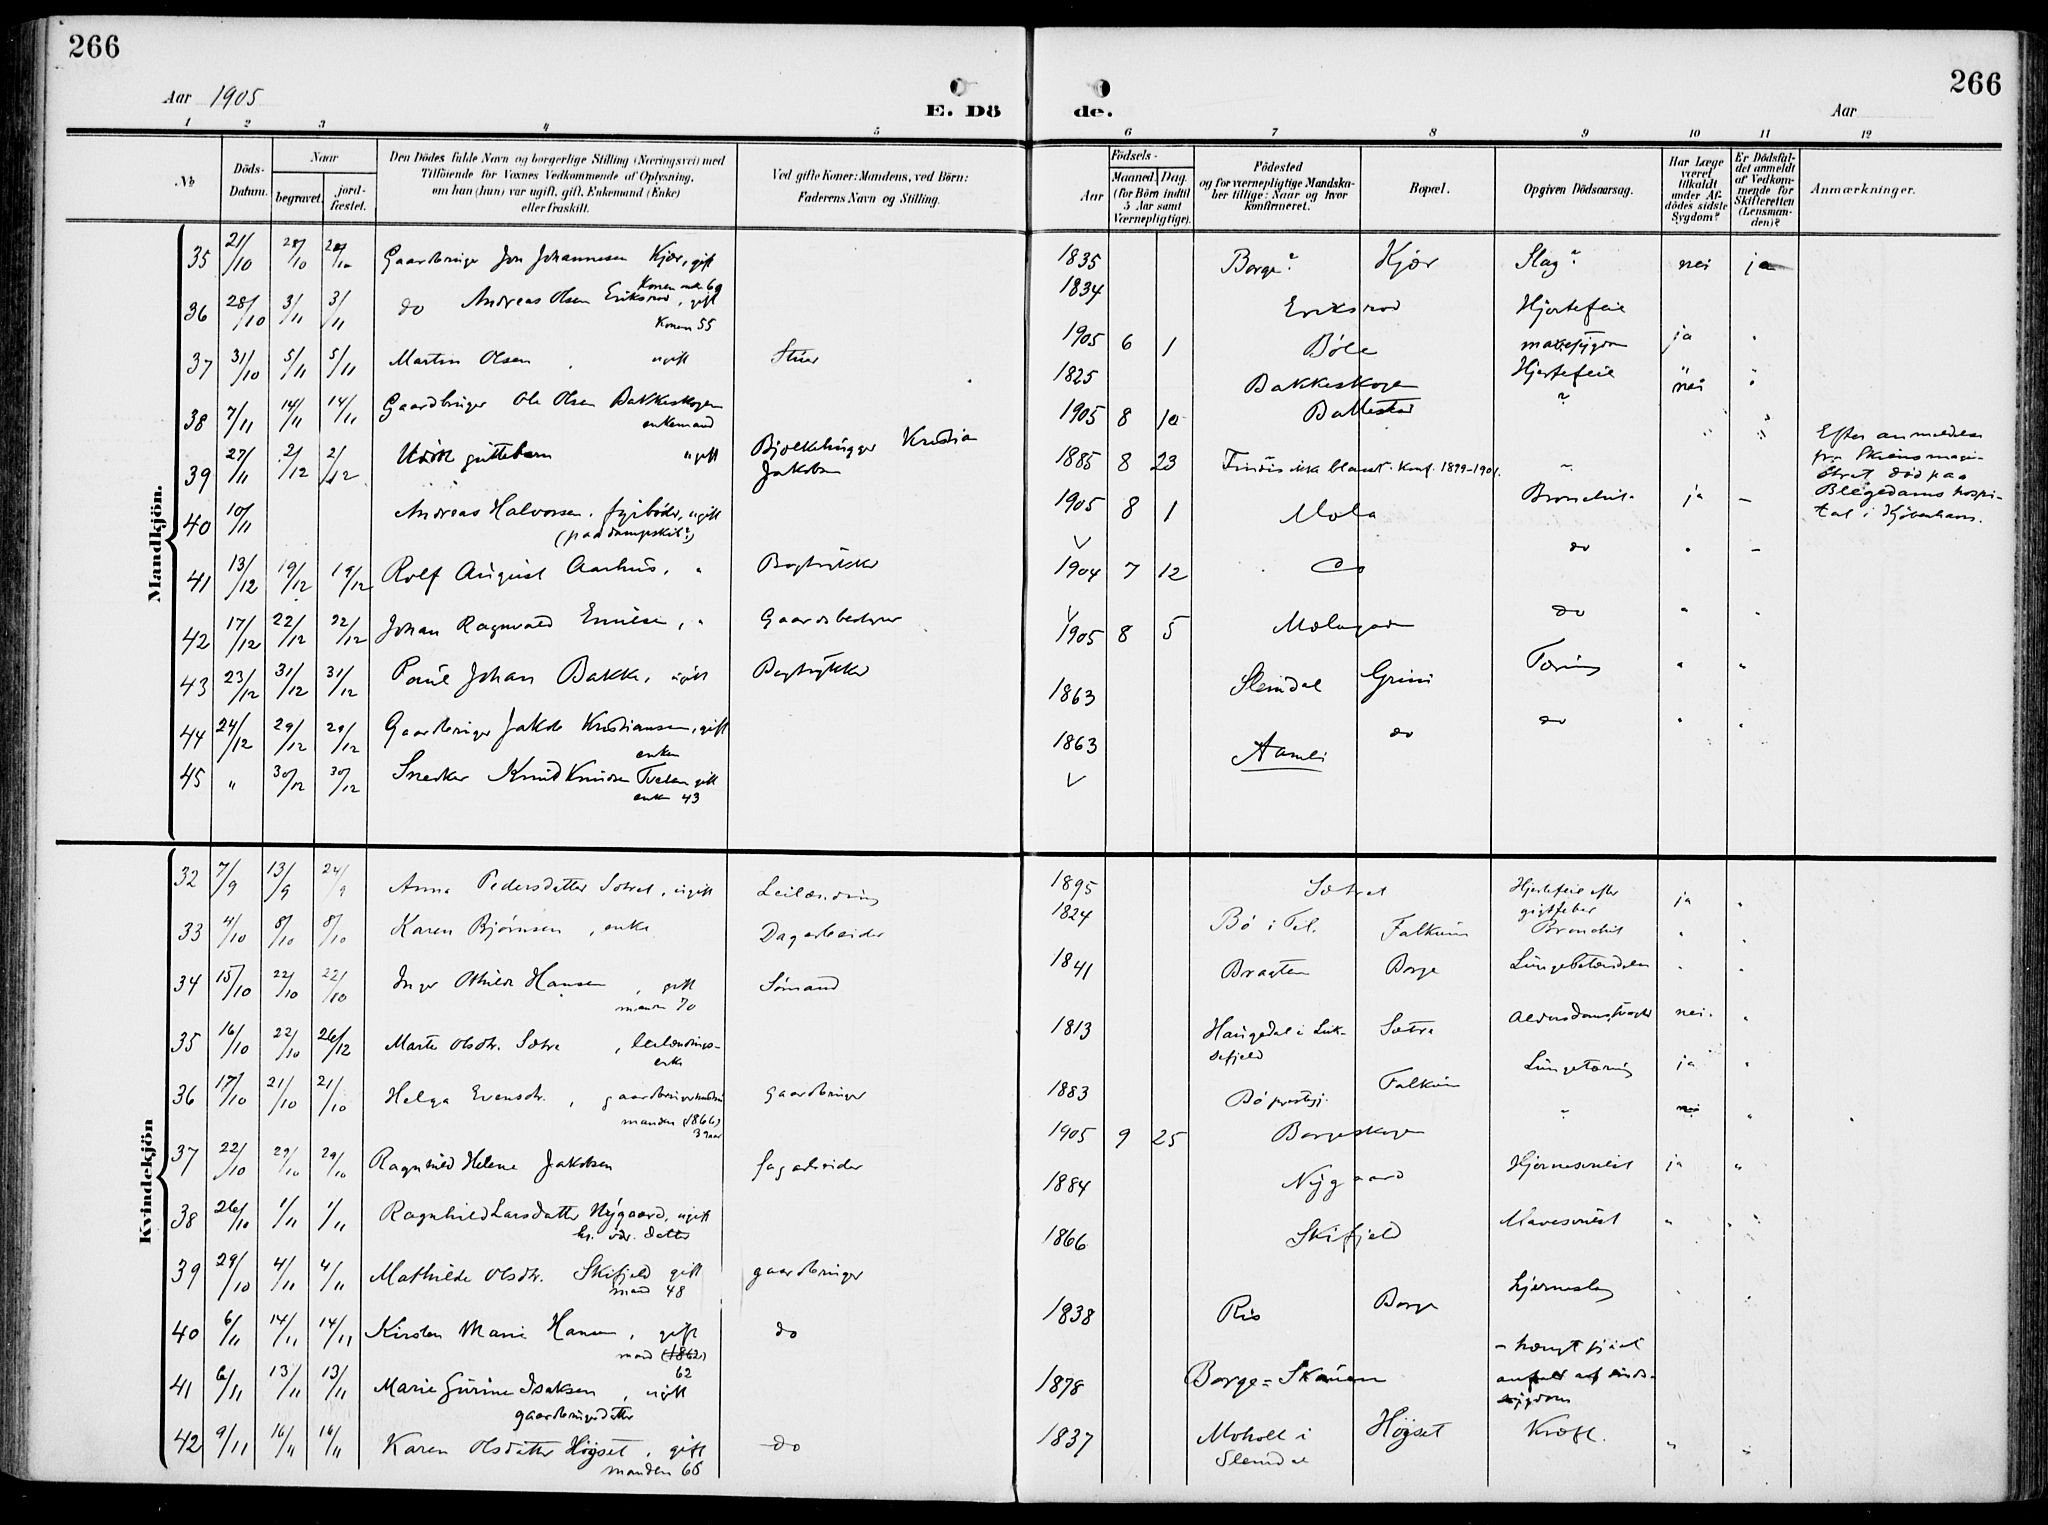 266
266
Aar 1905
E. Dö
de.
Aar
1 2 3 4 5
6 7 8 9 10 11 12
№
Döds-Datum.
Naar
begravet.
jord-fæstet.
Den Dödes fulde Navn og borgerlige Stilling (Næringsvei) med
Tilföiende for Voxnes Vedkommende af Oplysning,
om han (hun) var ugift, gift, Enkemand (Enke)
eller fraskilt.
Ved gifte Koner: Mandens, ved Börn:
Faderens Navn og Stilling.
Födsels-
Aar
Maaned. Dag.
(for Börn indtil
5 Aar samt
Værnepligtige).
Födested
og for værnepligtige Mandska-
ber tillige: Naar og hvor
Konfirmeret.
Bopæl.
Opgiven Dödsaarsag.
Har Læge
været
tilkaldt
under Af-
dödes sidste
Sygdom?
Er Dödsfal-
det anmeldt
af Vedkom-
mende for
Skifteretten
(Lensman-
den)?
Anmærkninger.
Mandkjön.
35 21/10 28/10 28/10 Gaardbruger Jon Johannesen Kjær, gift 1835 Borge? Kjær Slag? nei ja
36 28/10 3/11 3/11 do Andreas Olsen Eriksrod, gift 1834 Eriksrod Hjertefeil
Konen 55
37 31/10 5/11 5/11 Martin Olsen ugift 1905 6 1 Bøle mavesygdom ja "
38 7/11 14/11 14/11 Gaardbruger Ole Olsen Bakkeskogen 1825 Bakkeskogen Hjertefeil nei "
enkemand
39 27/11 2/12 2/12 Udöbt guttebarn ugift Kristian Jakobsen 1905 8 10 ?
40 10/11 Andreas Halvorsen, fyrböder, ugift 1885 8 23 Findes ikke blandt konf. 1899-1901. "
(paa dampskib?)
Efter anmeldelse
fra Skiens magi-
strat död paa
Blegedams hospi-
tal i Kjöbenhavn.
41 13/12 19/12 19/12 Rolf August Aarhus, " Bogtrykker 1905 8 1 Mæla Bronchit. ja –
42 17/12 22/12 22/12 Johan Ragnvald Emilsen, " Gaardsbestyrer 1904 7 12 do do " –
43 23/12 31/12 31/12 Poul Johan Bakke, ugift Bogtrykker 1905 8 5 Mælagaard do " "
44 24/12 29/12 29/12 Gaardbruger Jakob Kristiansen, gift 1863 Slemdal Grini Tæring " "
enken
45 " 30/12 30/12 Snedker Knud Knudsen Tveten gift 1863 Aamli do do " "
enken 43
Kvindekjön
32 7/9 13/9 24/9 Anna Pedersdatter Sætret, ugift Leilænding 1895 Sætret Hjertefeil efter ja "
gigtfeber
33 4/10 8/10 8/10 Karen Bjørnsen, enke Dagarbeider 1824 Bø i Tel. Falkum Bronchit " "
34 15/10 22/10 22/10 Inger Othilde Hansen, gift Sömand 1841 Bragten Borge Lungebetændelse " "
manden 70
35 16/10 22/10 26/12 Marte Olsdtr. Sætre, leilændings- 1813 Haugedal i Luk- Sætre Alderdomssvaghed nei "
enke sefjeld
36 17/10 21/10 21/10 Helga Evensdtr., Gaardbruger 1883 Bö prestegj. Falkum Lungetæring ja "
manden (1866)
39 aar
37 22/10 29/10 29/10 Ragnhild Helene Jakobsen Sagarbeider 1905 9 25 Borgeskogen ? nei "
38 26/10 1/11 1/11 Ragnhild Larsdatter Nygaard, ugift 1884 Nygaard ja "
39 29/10 4/11 4/11 Mathilde Olsdtr. Skifjeld gift gaardbruger 1866 Skifjeld " "
mand 48
40 6/11 14/11 14/11 Kirsten Marie Hansen, gift do 1838 Ris Borge Hjerneslag " "
mand (1862)
62
41 6/11 13/11 13/11 Marie Gurine Isaksen, ugift 1878 Borge=Skauen
anfald af sinds-
gaardbrugerdatter sygdom
42 9/11 16/11 16/11 Karen Olsdatter Høgset, gift do 1837 Moholt i Høgset Kræft. " "
manden 65 Slemdal